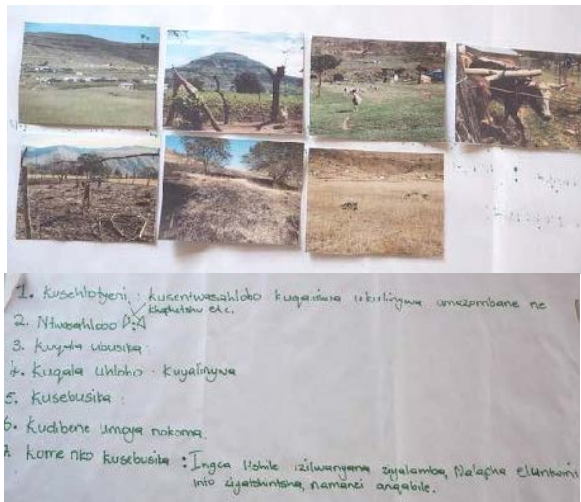 1. Kusehlotyeni : kusentwasahlobo kuqaliswa ukulinywa amazambane ne
khaphetshu etc.
2. Ntwasahlobo
3. Kuqala ubusika.
4. Kuqala uhlobo. Kuyalinywa
5. Kusebusika :
6. Kudibene umoya nokoma.
7. kome nko kusebusika : Ingca itshile izilwanyana ziyalamba, Nalapha elunxwini
into ziyatshintsha, namanzi angabile.